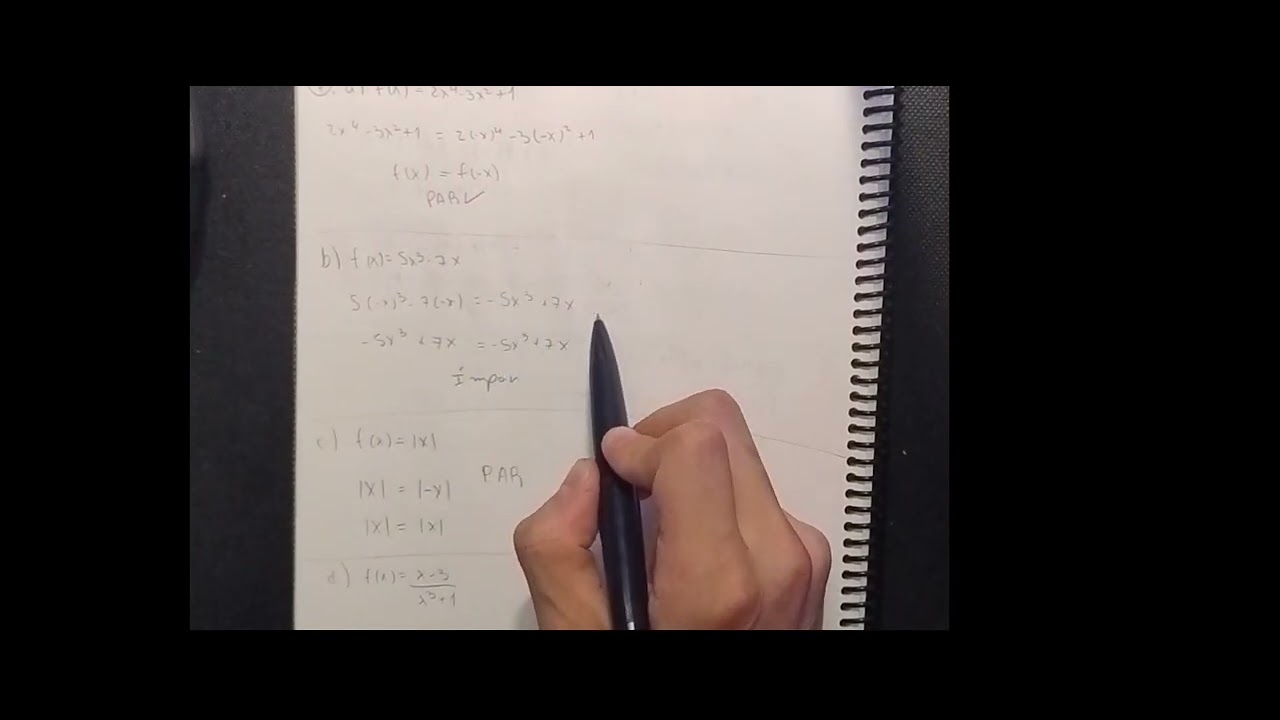 a) f(x) = 2x⁴-3x²+1
2x⁴ -3x²+1 = 2(-x)⁴ -3(-x)² +1
f(x) = f(-x)
PAR✓
b) f(x)= 5x³-7x
5(-x)³-7(-x) = -5x³+7x
-5x³ +7x = -5x³+7x
Ímpar
c) f(x)= |x|
PAR
|x| = |-x|
|x| = |x|
d) f(x)= x-3
x³+1